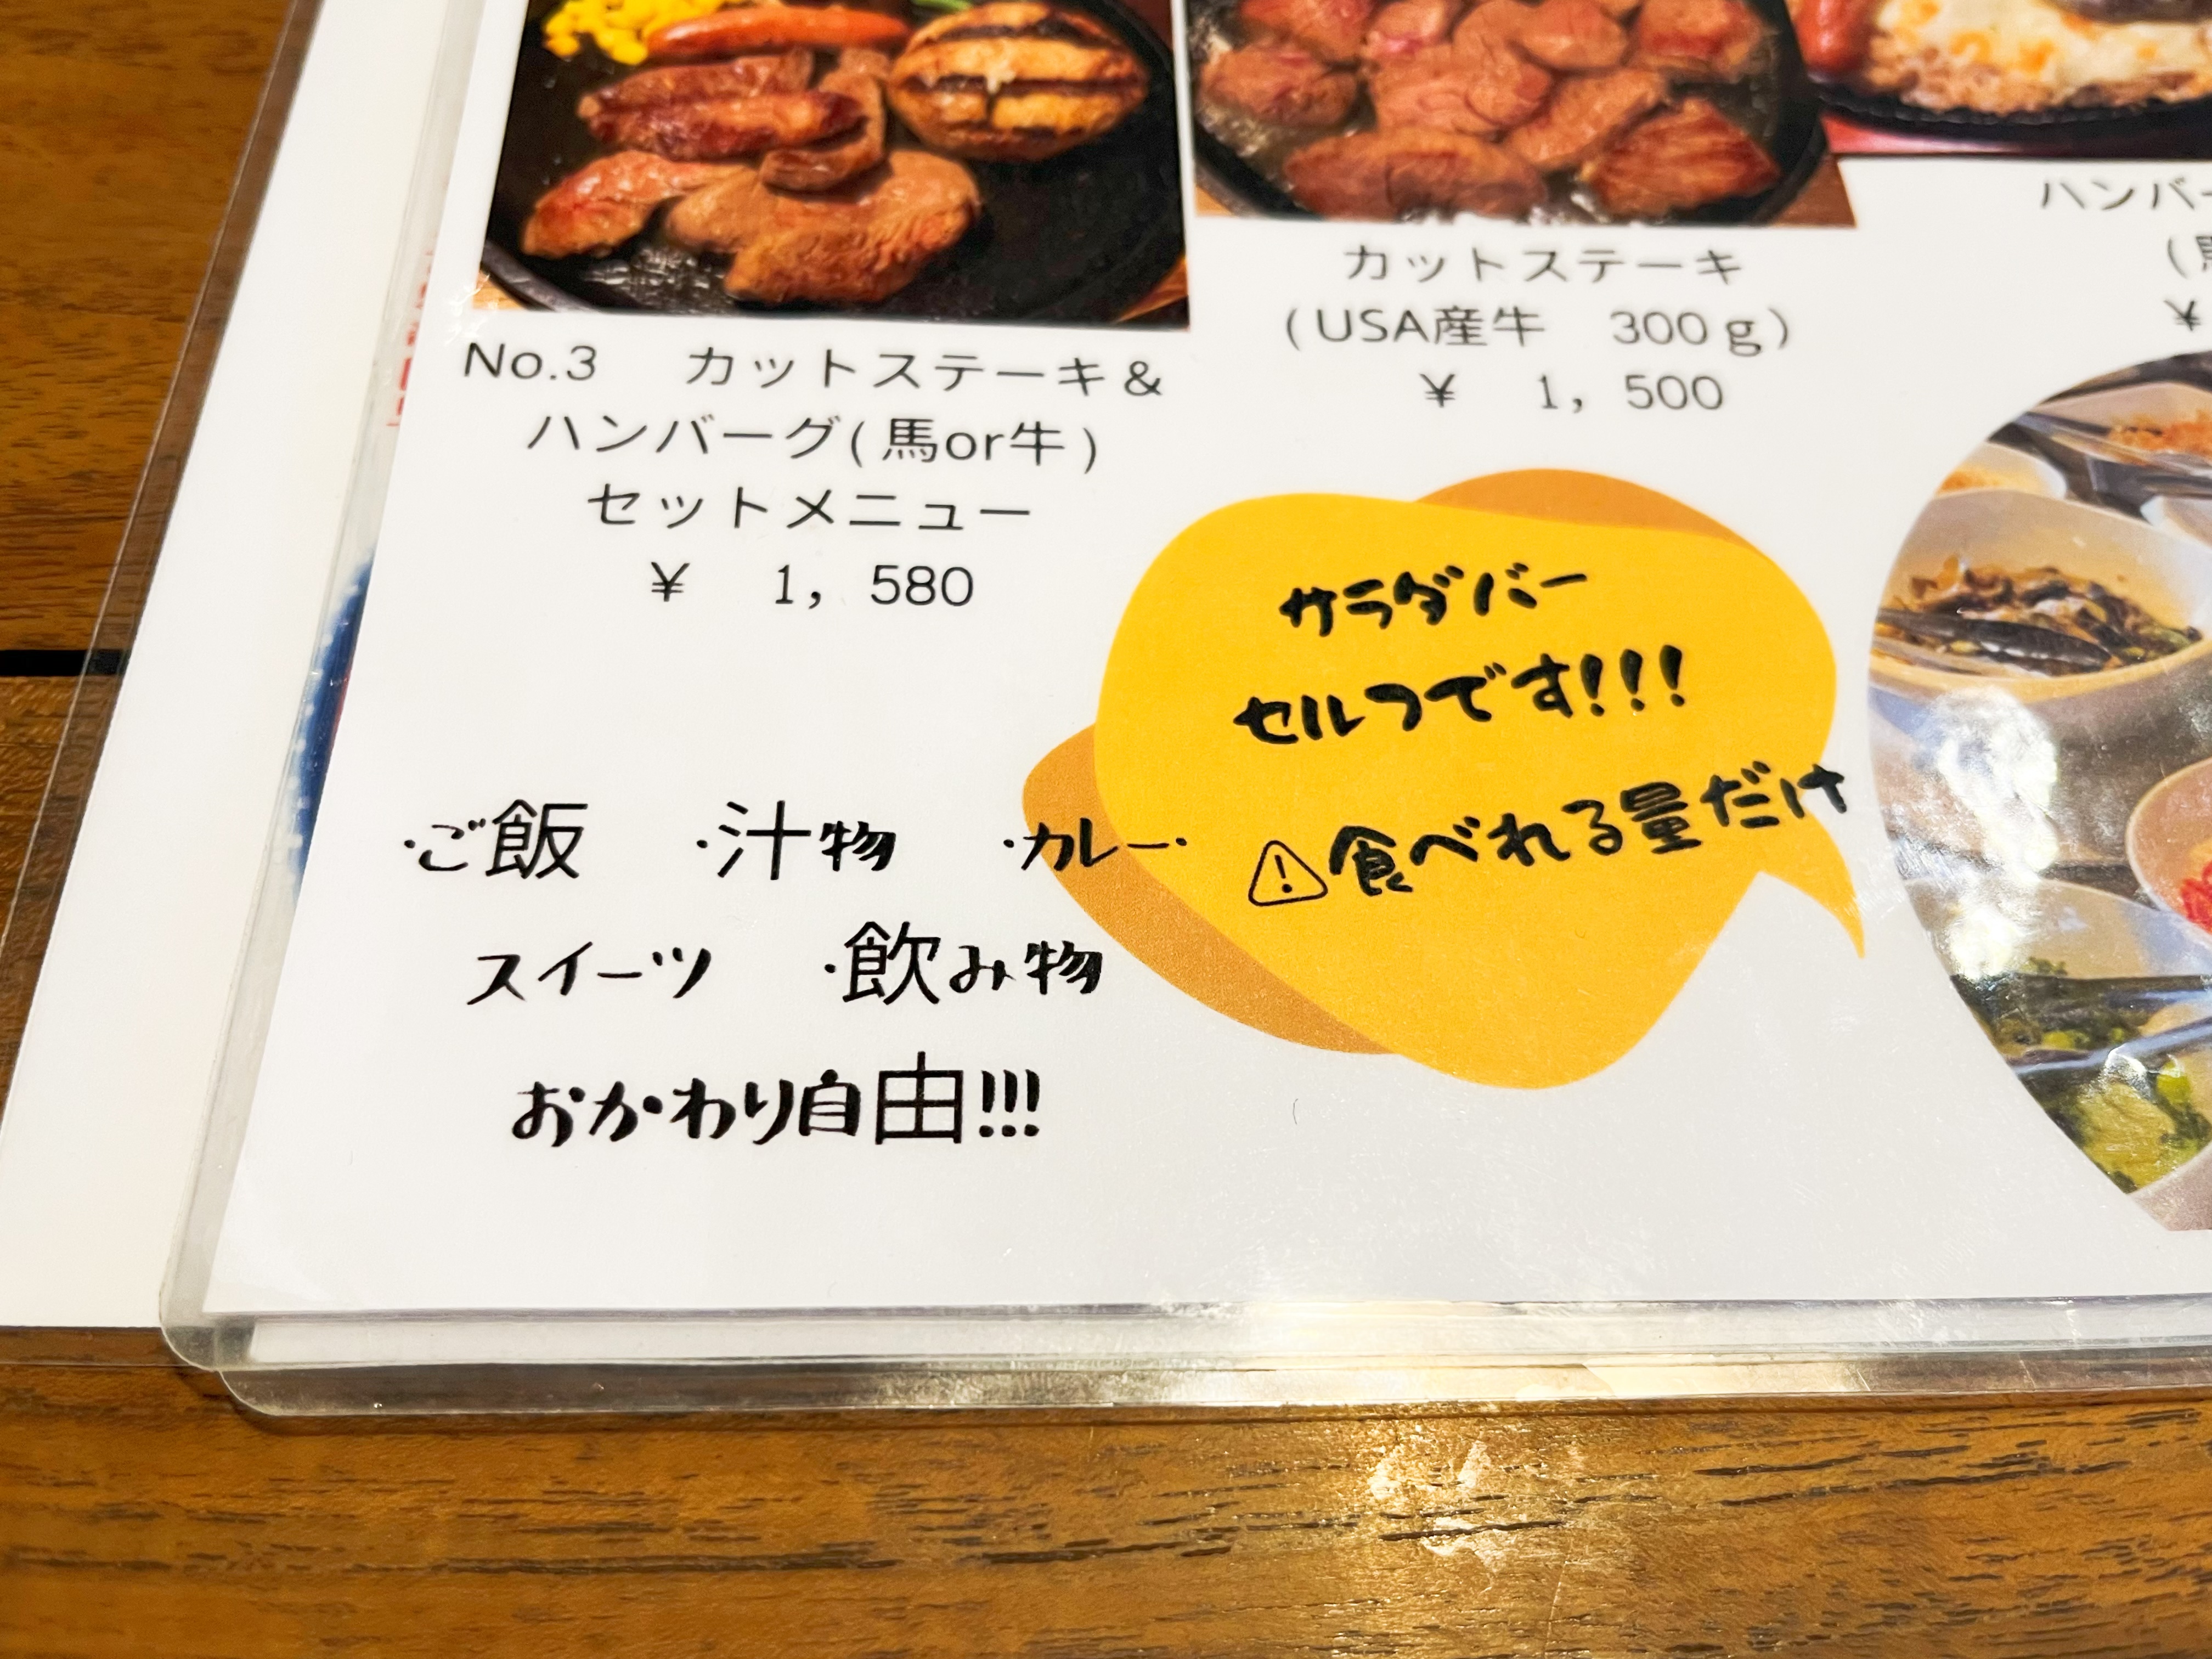 No.3　カットステーキ&
ハンバーグ(馬or牛)
セットメニュー
¥　1，580
カットステーキ
(USA産牛　300ｇ)
¥　1，500
ハンバー
(
¥
サラダバー
セルフです!!!
⚠食べれる量だけ
・ご飯　・汁物　・カレー・
スイーツ　・飲み物
おかわり自由!!!